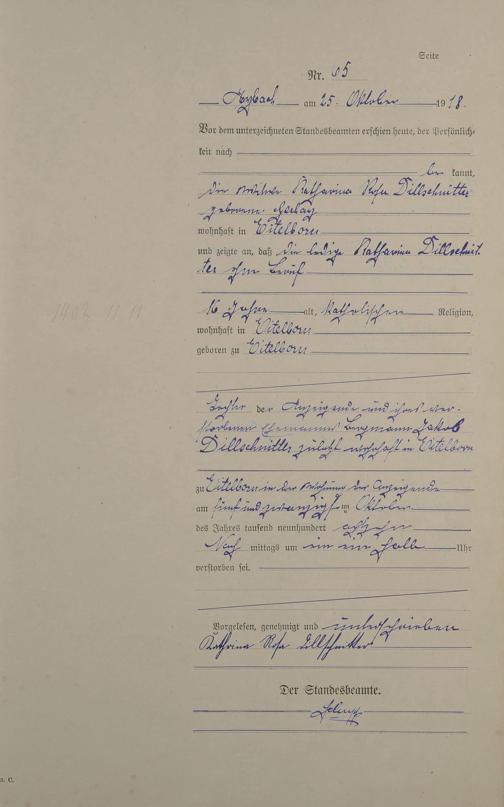 Seite
Nr. 65
Arzbach am 25. Oktober 1918.
Vor dem unterzeichneten Standesbeamten erschien heute, der Persönlich-
keit nach
be kannt,
die Witwe Katharina Rosa Dillschnitter
geborene
wohnhaft in Eitelborn
und zeigte an, daß die ledige Katharina Dillschnit-
ter ohne Beruf
16 Jahre alt, katholischen Religion,
wohnhaft in Eitelborn
geboren zu Eitelborn
Tochter der Anzeigende und ihres ver-
storbenen Ehemannes Bergmann Jakob
Dillschnitter zuletzt wohnhaft in Eitelborn
zu Eitelborn in der Wohnung der Anzeigende
am fünfundzwanzigsten Oktober
des Jahres tausend neunhundert achtzehn
Nach mittags um ein ein halb Uhr
verstorben sei.
Vorgelesen, genehmigt und unterschrieben
Kathrina Rosa Dillschnitter
Der Standesbeamte.